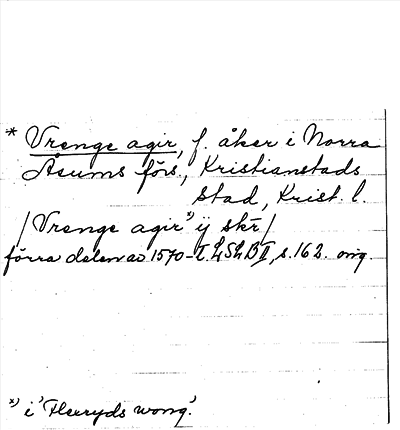 * Vrenge agir, f. åker i Norra
Åsums förs., Kristianstads
stad, Krist. l.
/Vrenge agir *) ij skr/
förra delen av 1570-t. LSLB II, s. 162. orig.
*) i 'Fleryds wong'.